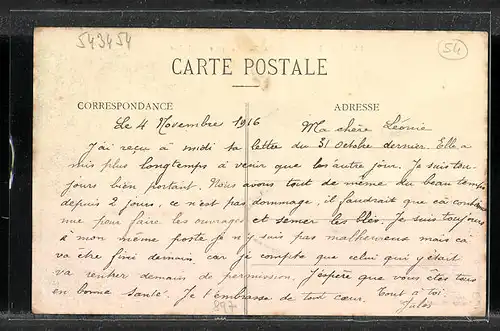 543454
54
CARTE POSTALE
CORRESPONDANCE
ADRESSE
Le 4 Novembre 1916
Ma chère Léonie
J'ai reçu à midi ta lettre du 31 Octobre dernier. Elle a
mis plus longtemps à venir que les autre jour. Je suis tou-
jours bien portant. Nous avons tout de même du beau temps
depuis 2 jours, ce n'est pas dommage, il faudrait que ca contin
nue pour faire les ouvrages et semer les blés. Je suis toujours
à mon même poste je n'y suis pas malheureux mais ca
va être fini demain, car je compte que celui qui y était
va rentrer demain de permission. J'espère que vous êtes tous
en bonne santé. Je t'embrasse de tout cœur. Tout à toi.
Jules
897